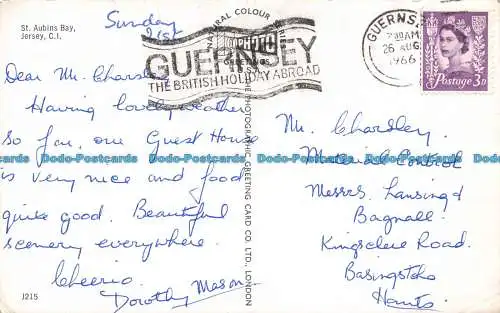 St. Aubins Bay,
Jersey, C.I.
Sunday
21st
Dear Mr. Chardley
Having lovely weather
so far, our Guest House
is very nice and food
quite good. Beautiful
scenery everywhere.
Cheerio.
Dorothy Mason
J215
NATURAL COLOUR SERIES
PHOTO
GREETINGS
GUERNSEY
THE BRITISH HOLIDAY ABROAD
THE PHOTOGRAPHIC GREETING CARD CO. LTD., LONDON
GUERNSEY
7.30AM
26 AUG
1966
Postage 3D
Mr. Chardley
Material Control
Messrs Lansing &
Bagnall
Kingsclere Road.
Basingstoke
Hants.
Dodo-Postcards Dodo-Postcards Dodo-Postcards Dodo-Postcards